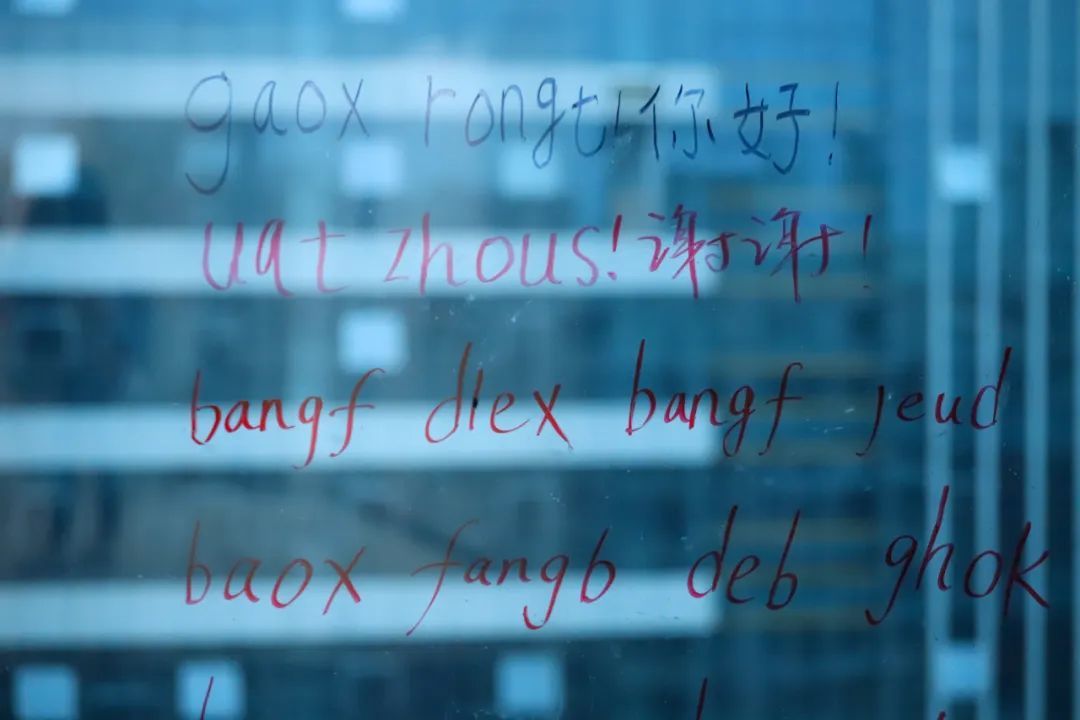 gaox rongt!你好!
uat zhous!谢谢!
bangf dlex bangf jeud
baox fangb deb ghok